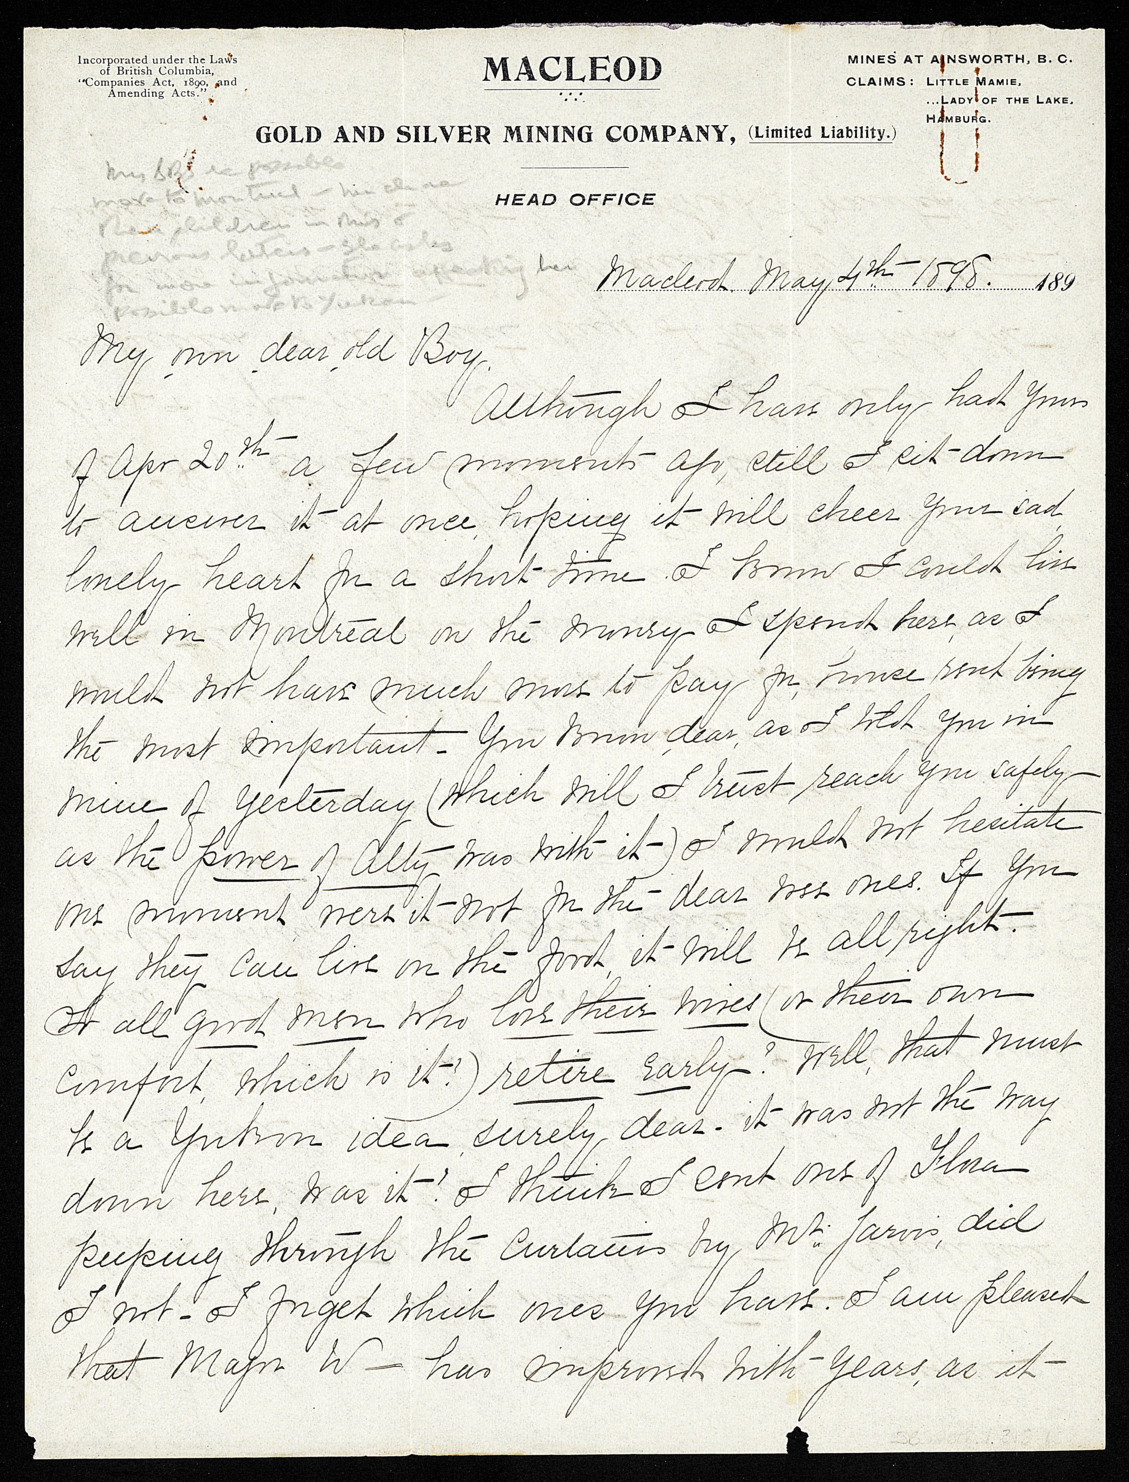 Incorporated under the Laws
of British Columbia,
"Companies Act, 1890, and
Amending Acts."
MACLEOD
GOLD AND SILVER MINING COMPANY, (Limited Liability.)
HEAD OFFICE
MINES AT AINSWORTH, B. C.
CLAIMS: LITTLE MAMIE,
...LADY OF THE LAKE,
HAMBURG.
re possible
move to Montreal –
their children in this &
previous letters – She asks
for more information regarding her
possible move to Yukon –
Macleod. May 4th 1898. 189
My own dear old Boy.
Although I have only had yours
of Apr 20th a few moments ago, still I sit down
to answer it at once, hoping it will cheer your sad,
lonely heart for a short time. I know I could live
well in Montreal on the money I spend here, as I
would not have much more to pay for, house rent being
the most important – You know, dear, as I told you in
mine of yesterday (which will I trust reach you safely
as the power of Atty was with it) I would not hesitate
one moment were it not for the dear wee ones. If you
say they can live on the food, it will be all right.
So all good men who love their wives (or their own
comfort, which is it?) retire early? Well, that must
be a Yukon idea, surely, dear – it was not the way
down here, was it? I think I sent one of Flora
peeping through the curtains by Mr. Jarvis, did
I not – I forget which ones you have. I am pleased
that Major W – has improved with years, as it